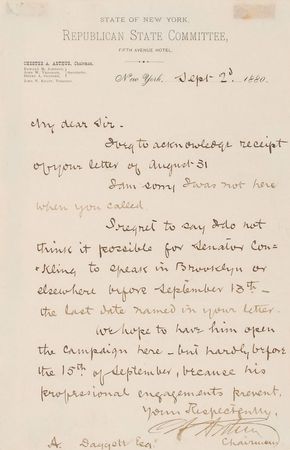 STATE OF NEW YORK.
REPUBLICAN STATE COMMITTEE,
FIFTH AVENUE HOTEL,
CHESTER A. ARTHUR, Chairman.
New York. Sept 2d 1880.
My dear Sir.
I beg to acknowledge receipt
of your letter of August 31
I am sorry I was not here
when you called.
I regret to say I do not
think it possible for Senator Con-
kling to speak in Brooklyn or
elsewhere before September 13th -
the last date named in your letter.
We hope to have him open
the campaign here - but hardly before
the 15th of September, because his
professional engagements prevent.
Yours Respectfully,
C A Arthur
Chairman
A. Daggett Esq.